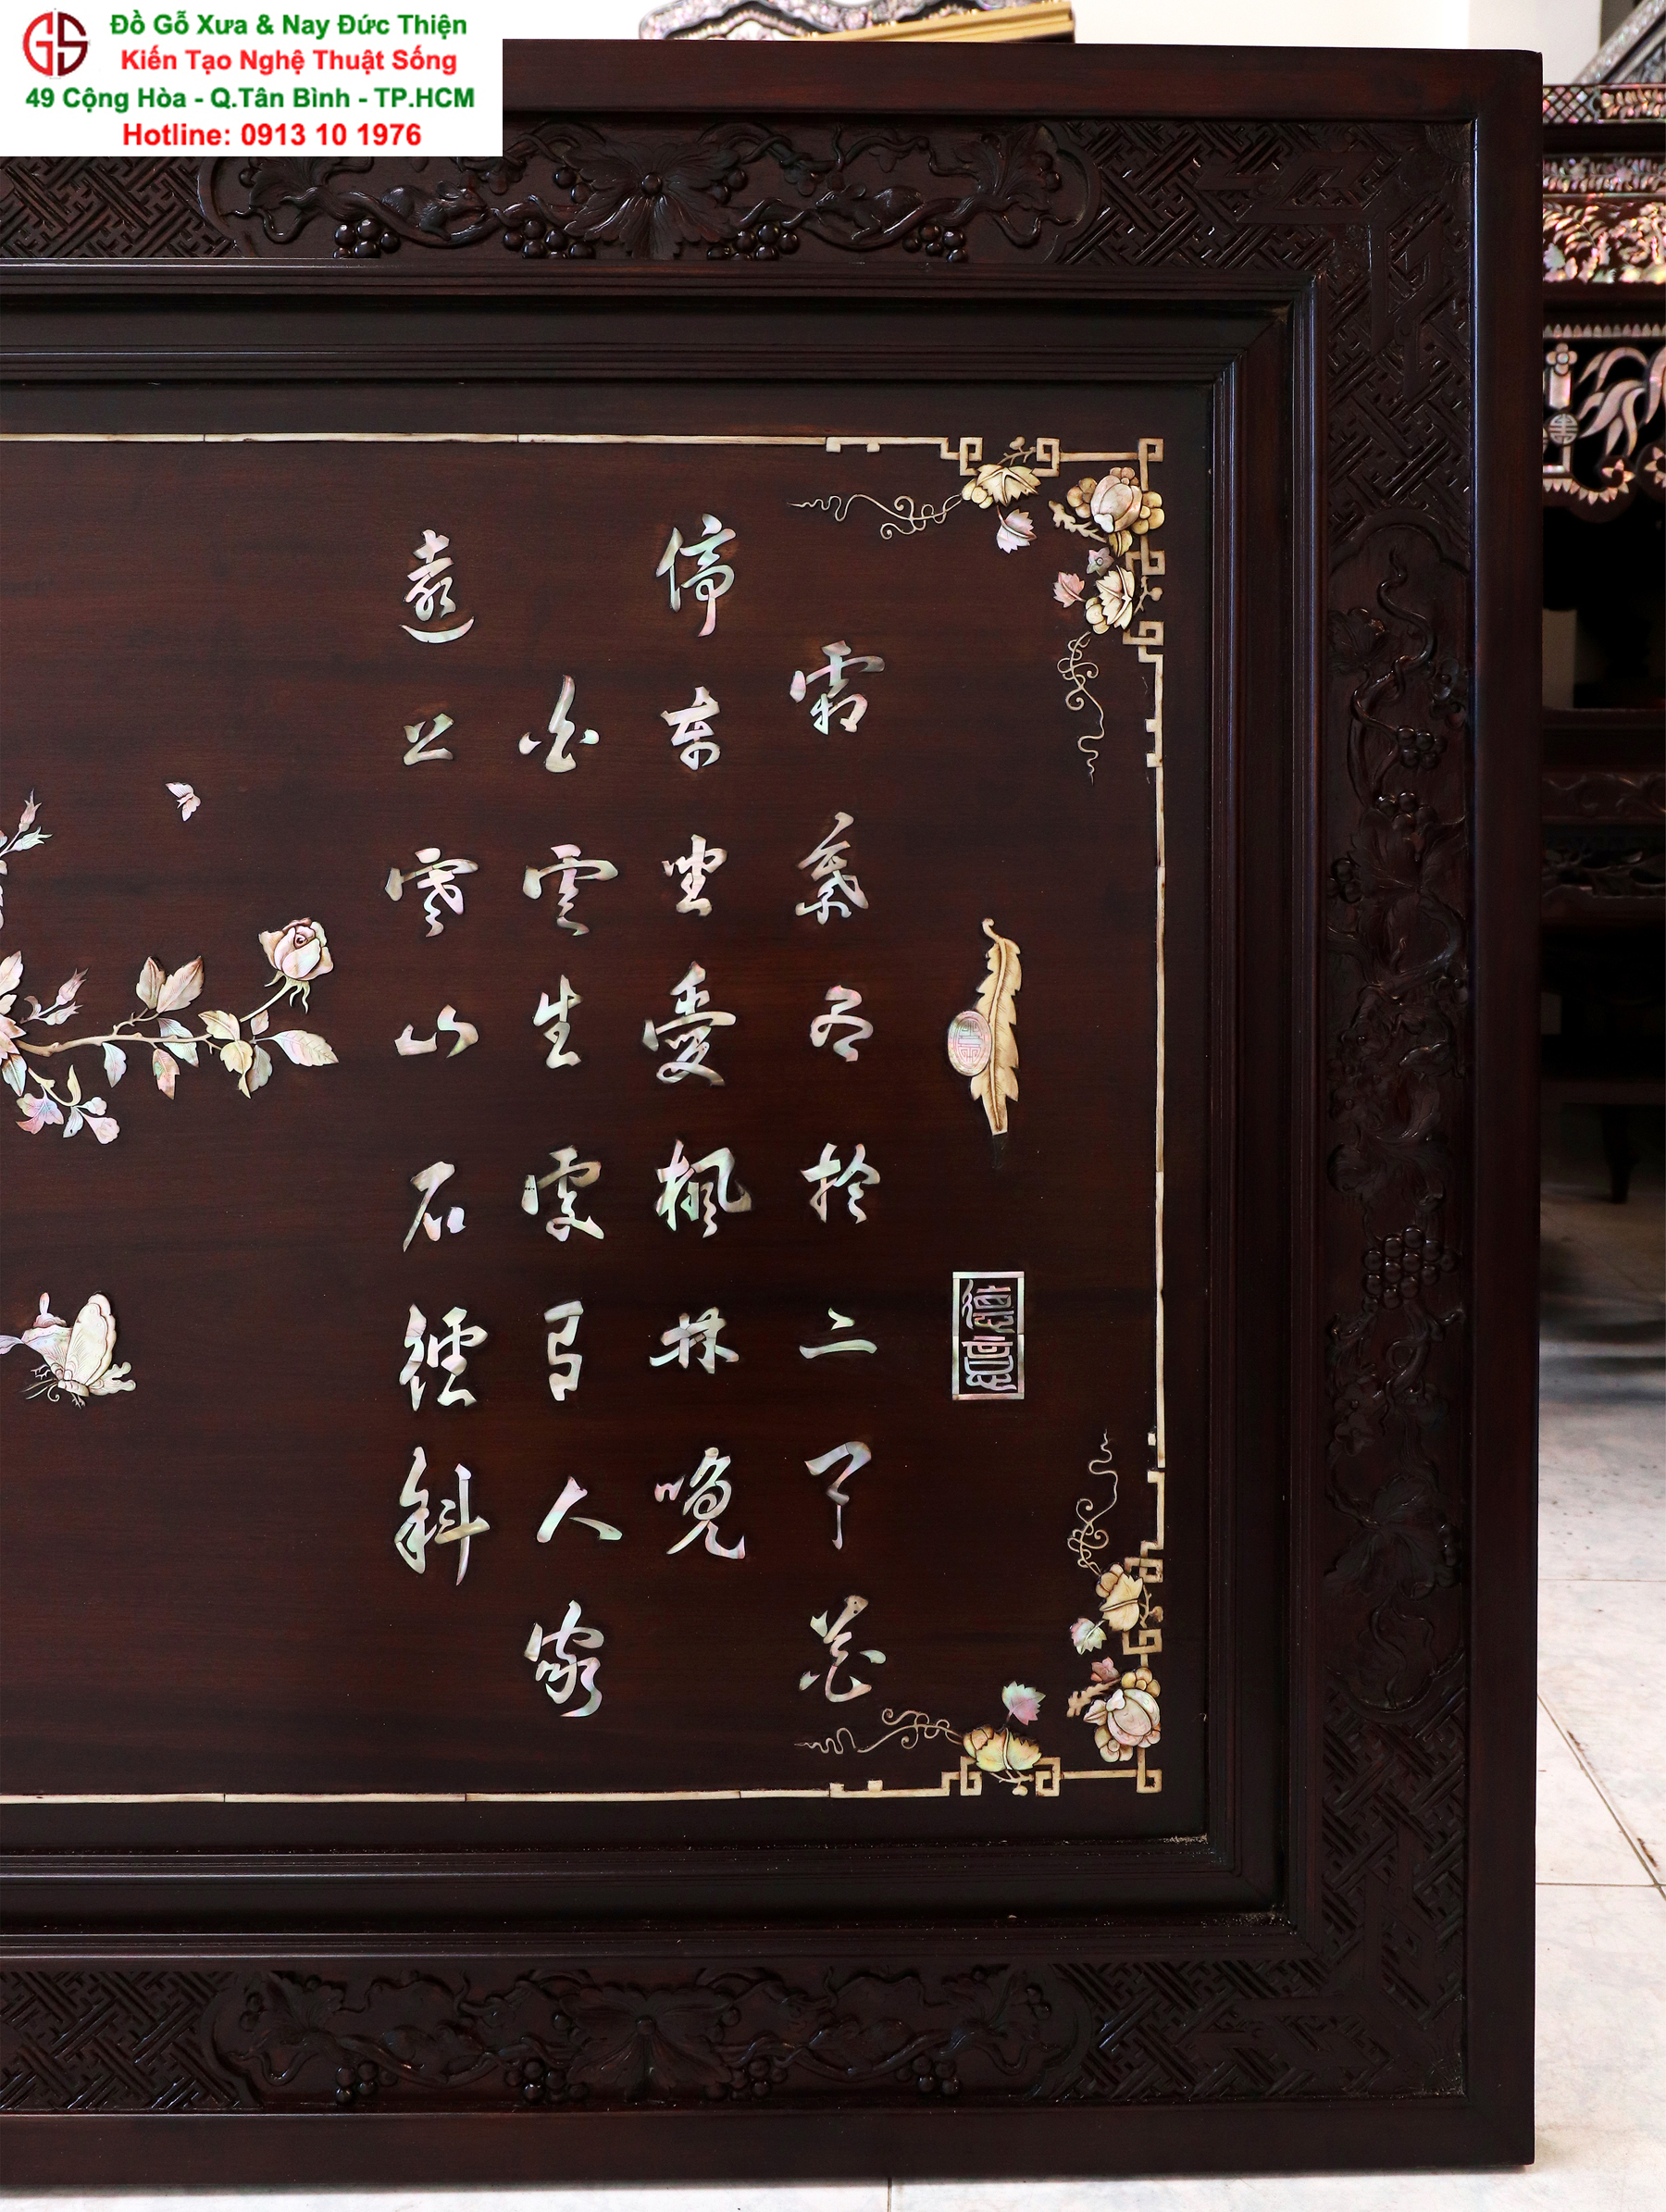 Đồ Gỗ Xưa & Nay Đức Thiện
Kiến Tạo Nghệ Thuật Sống
49 Cộng Hòa - Q.Tân Bình - TP.HCM
Hotline: 0913 10 1976
遠上寒山石徑斜
白雲生處有人家
停車坐愛楓林晚
霜葉紅於二月花